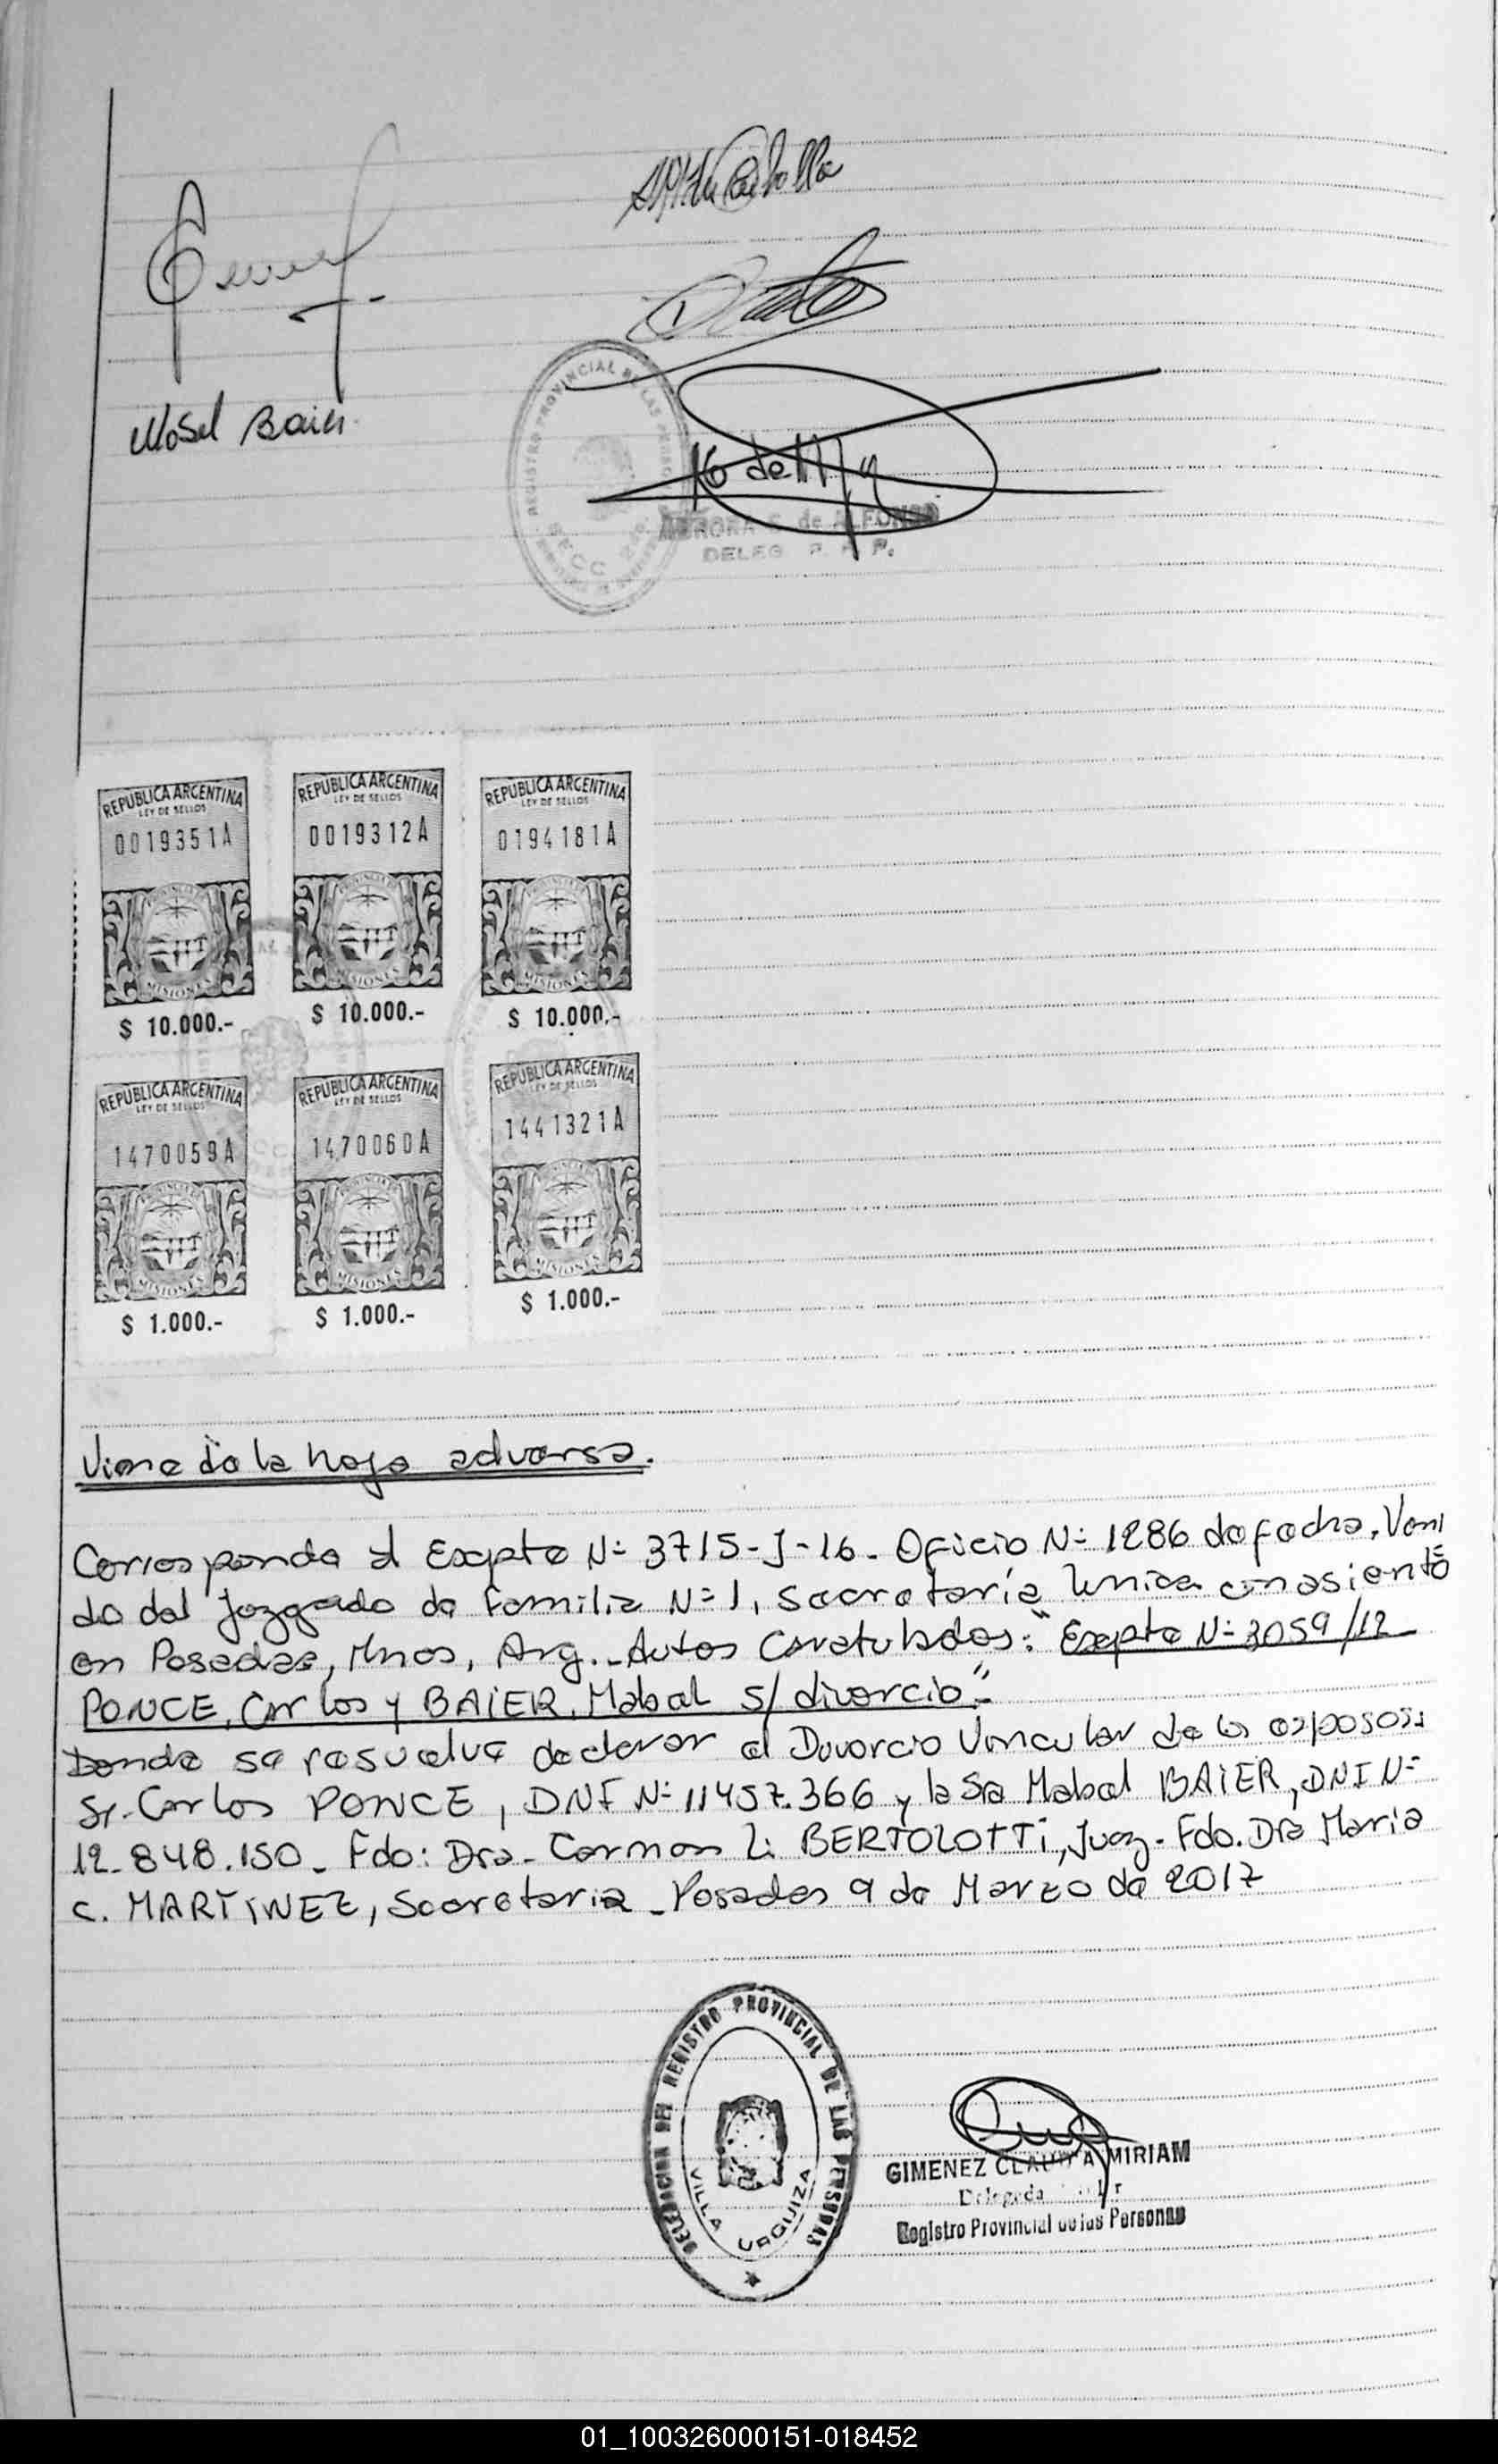 REGISTRO PROVINCIAL DE LAS
SECC 2da.
16 de
AURORA de ALFONSO
DELEG. R. P. P.
REPUBLICA ARGENTINA
LEY DE SELLOS
0019351A
MISIONES
$ 10.000.-
REPUBLICA ARGENTINA
LEY DE SELLOS
0019312A
MISIONES
$ 10.000.-
REPUBLICA ARGENTINA
LEY DE SELLOS
0194181A
MISIONES
$ 10.000.-
REPUBLICA ARGENTINA
LEY DE SELLOS
1470059A
MISIONES
$ 1.000.-
REPUBLICA ARGENTINA
LEY DE SELLOS
1470060A
MISIONES
$ 1.000.-
REPUBLICA ARGENTINA
LEY DE SELLOS
1441321A
MISIONES
$ 1.000.-
Viene de la hoja adversa.
Corresponde al Expte Nº 3715-J-16. Oficio Nº 1286 de fecha. Veni
do del Juzgado de Familia Nº 1, Secretaría Unica con asiento
en Posadas, Mnes, Arg. - Autos Caratulados: "Expte Nº 3059/12
PONCE, Carlos y BAIER, Mabel s/ divorcio".
Donde se resuelve declarar el Divorcio Vincular de los esposos:
Sr. Carlos PONCE, DNI Nº 11457.366 y la Sra Mabel BAIER, DNI Nº
12.848.150. Fdo: Dra. Carmen L. BERTOLOTTI, Juez - Fdo. Dra Maria
C. MARTINEZ, Secretaria - Posadas 9 de Marzo de 2017
DELEGACION DEL REGISTRO PROVINCIAL DE LAS PERSONAS
VILLA URQUIZA
GIMENEZ CLAUDIA MIRIAM
Delegada
Registro Provincial de las Personas
01_100326000151-018452